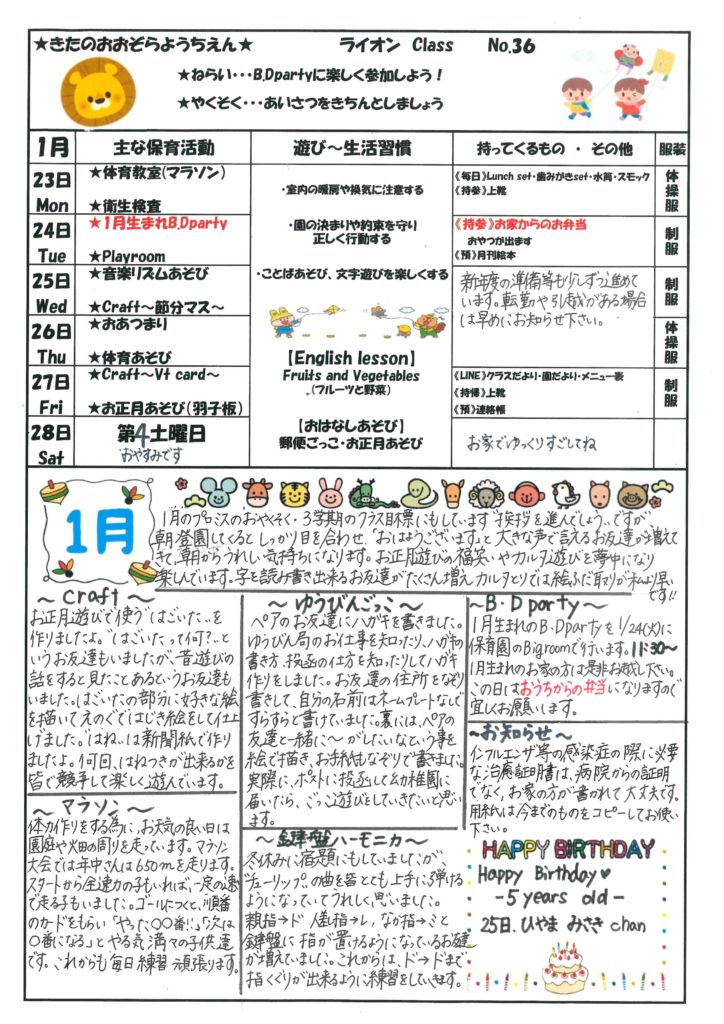 ★きたのおおぞらようちえん★　ライオン Class　No.36
★ねらい・・・B.Dpartyに楽しく参加しよう！
★やくそく・・・あいさつをきちんとしましょう
1月　主な保育活動　遊び～生活習慣　持ってくるもの ・ その他　服装
23日 Mon
★体育教室(マラソン)
★衛生検査
《毎日》Lunch set・歯みがきset・水筒・スモック
《持参》上靴
体操服
24日 Tue
★1月生まれB.Dparty
★Playroom
《持参》お家からのお弁当
おやつが出ます
《預》月刊絵本
制服
25日 Wed
★音楽リズムあそび
★Craft～節分マス～
新年度の準備等も少しずつ進めて
います。転勤や引越がある場合
は早めにお知らせ下さい。
制服
26日 Thu
★おあつまり
★体育あそび
体操服
27日 Fri
★Craft～Vt card～
★お正月あそび(羽子板)
《LINE》クラスだより・園だより・メニュー表
《持帰》上靴
《預》連絡帳
制服
28日 Sat
第4土曜日
おやすみです
お家でゆっくりすごしてね
・室内の暖房や換気に注意する
・園の決まりや約束を守り
正しく行動する
・ことばあそび、文字遊びを楽しくする
【English lesson】
Fruits and Vegetables
(フルーツと野菜)
【おはなしあそび】
郵便ごっこ・お正月あそび
1月
1月のプロミスのおやくそく・3学期のクラス目標にもしています"挨拶を進んでしよう"ですが
朝、登園してくると しっかり目を合わせ、「おはようございます」と大きな声で言えるお友達が増えて
きて、朝からうれしい気持ちになります。お正月遊びの福笑いやカルタ遊びを夢中になり
楽しんでいます。字を読み書き出来るお友達がたくさん増え カルタとりでは絵ふだ取りが私より早い
です!!
～Craft～
お正月遊びで使う"はごいた"を
作りましたよ。"はごいたって何？"と
いうお友達もいましたが、昔遊びの
話をすると見たことあるというお友達も
いました。はごいたの部分に好きな絵
を描いてえのぐではじき絵をして仕上
げました。"はね"は新聞紙で作り
ましたよ。何回、はねつきが出来るかを
皆で競争して楽しく遊んでいます。
～マラソン～
体力作りをする為に、お天気の良い日は
園庭や畑の周りを走っています。マラソン
大会では年中さんは650mを走ります。
スタートから全速力の子もいれば、一定の速さ
で走る子もいました。ゴールにつくと、順番
のカードをもらい「やった〇〇番!!」「次は
〇番になる」とやる気満々の子供達
です。これからも毎日練習頑張ります。
～ゆうびんごっこ～
ペアのお友達にハガキを書きました。
ゆうびん局のお仕事を知ったり、ハガキの
書き方、投函の仕方を知ったりしてハガキ
作りをしました。お友達の住所をなぞり
書きして、自分の名前はネームプレートなしで
すらすらと書けていました。裏には、ペアの
友達と一緒に～がしたいなという事を
絵で描き、お手紙もなぞりで書きました。
実際に、ポストに投函して幼稚園に
届いたら、ごっこ遊びをしていきたいと思い
ます。
～鍵盤ハーモニカ～
冬休みに宿題にもしていましたが、
"チューリップ"の曲を皆とても上手に弾ける
ようになっていてうれしく思いました。
親指→ド 人差指→レ，なか指→ミと
鍵盤に指が置けるようになっているお友達
が増えていました。これからは、ド→ドまで
指くぐりが出来るように練習をしていきます。
～B・D party～
1月生まれのB・Dpartyを1/24(火)に
保育園のBigroomで行います。11:30～
1月生まれのお家の方は是非お越し下さい。
この日はおうちからの弁当になりますので
宜しくお願います。
～お知らせ～
インフルエンザ等の感染症の際に必要
な治癒証明書は、病院からの証明
でなく、お家の方が書かれて大丈夫です。
用紙は今までのものをコピーしてお使い
下さい。
HAPPY BIRTHDAY
Happy Birthday♥
－5 years old－
25日. ひやま みさき chan